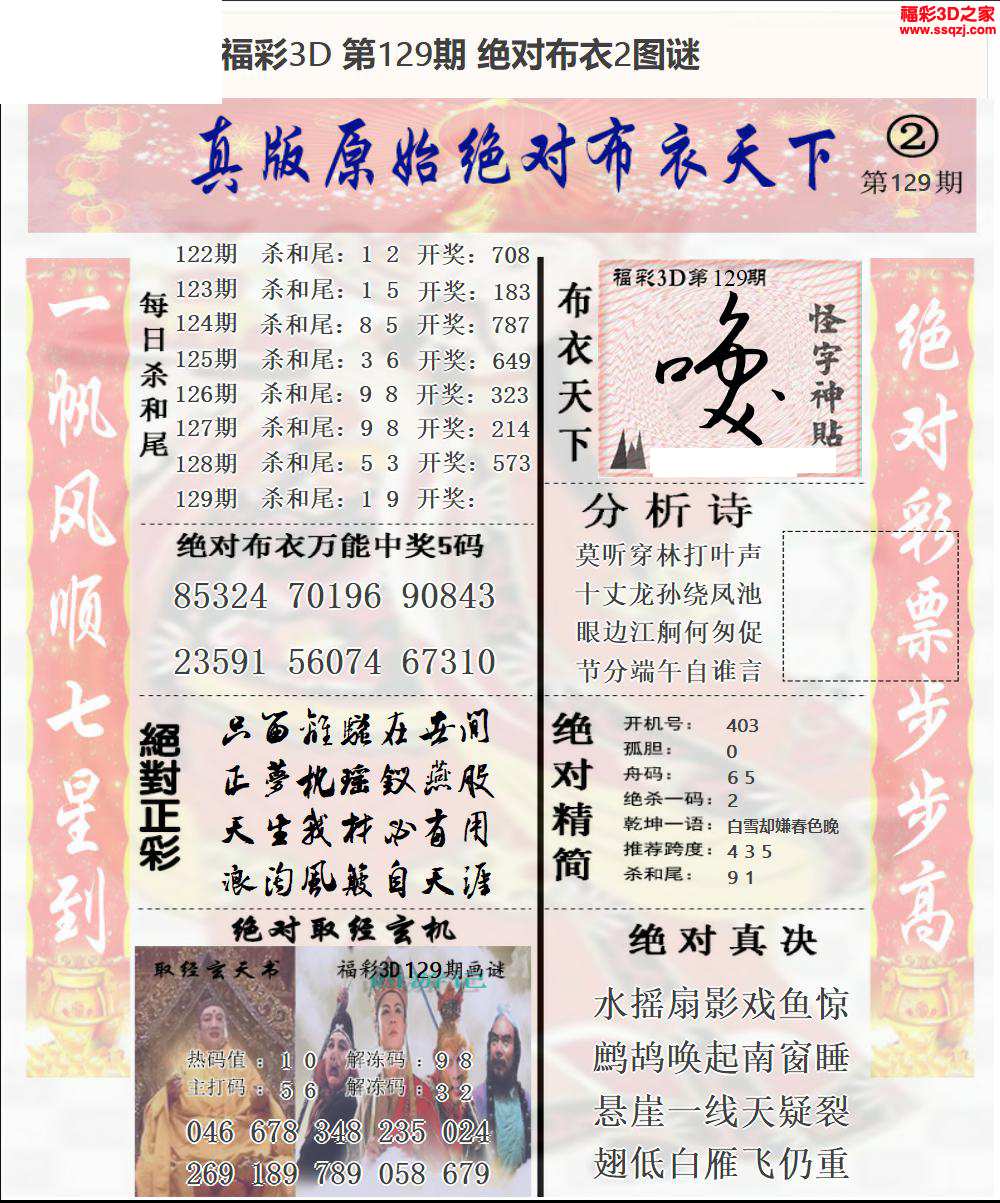 福彩3D之家
www.ssqzj.com
福彩3D 第129期 绝对布衣2图谜
真版原始绝对布衣天下
②
第129期
一帆风顺七星到
每日杀和尾
122期 杀和尾：1 2 开奖：708
123期 杀和尾：1 5 开奖：183
124期 杀和尾：8 5 开奖：787
125期 杀和尾：3 6 开奖：649
126期 杀和尾：9 8 开奖：323
127期 杀和尾：9 8 开奖：214
128期 杀和尾：5 3 开奖：573
129期 杀和尾：1 9 开奖：
绝对布衣万能中奖5码
85324 70196 90843
23591 56074 67310
絕對正彩
只留離騷在世間
正夢枕瑶釵燕股
天生我材必有用
浪淘風簸自天涯
绝对取经玄机
取经玄天书
福彩3D129期画谜
热码值：1 0 解冻码：9 8
主打码：5 6 解冻码：3 2
046 678 348 235 024
269 189 789 058 679
布衣天下
福彩3D第129期
怪字神貼
分析诗
莫听穿林打叶声
十丈龙孙绕凤池
眼边江舸何匆促
节分端午自谁言
绝对精简
开机号：403
孤胆：0
舟码：6 5
绝杀一码：2
乾坤一语：白雪却嫌春色晚
推荐跨度：4 3 5
杀和尾：9 1
绝对真决
水摇扇影戏鱼惊
鹧鸪唤起南窗睡
悬崖一线天疑裂
翅低白雁飞仍重
绝对彩票步步高